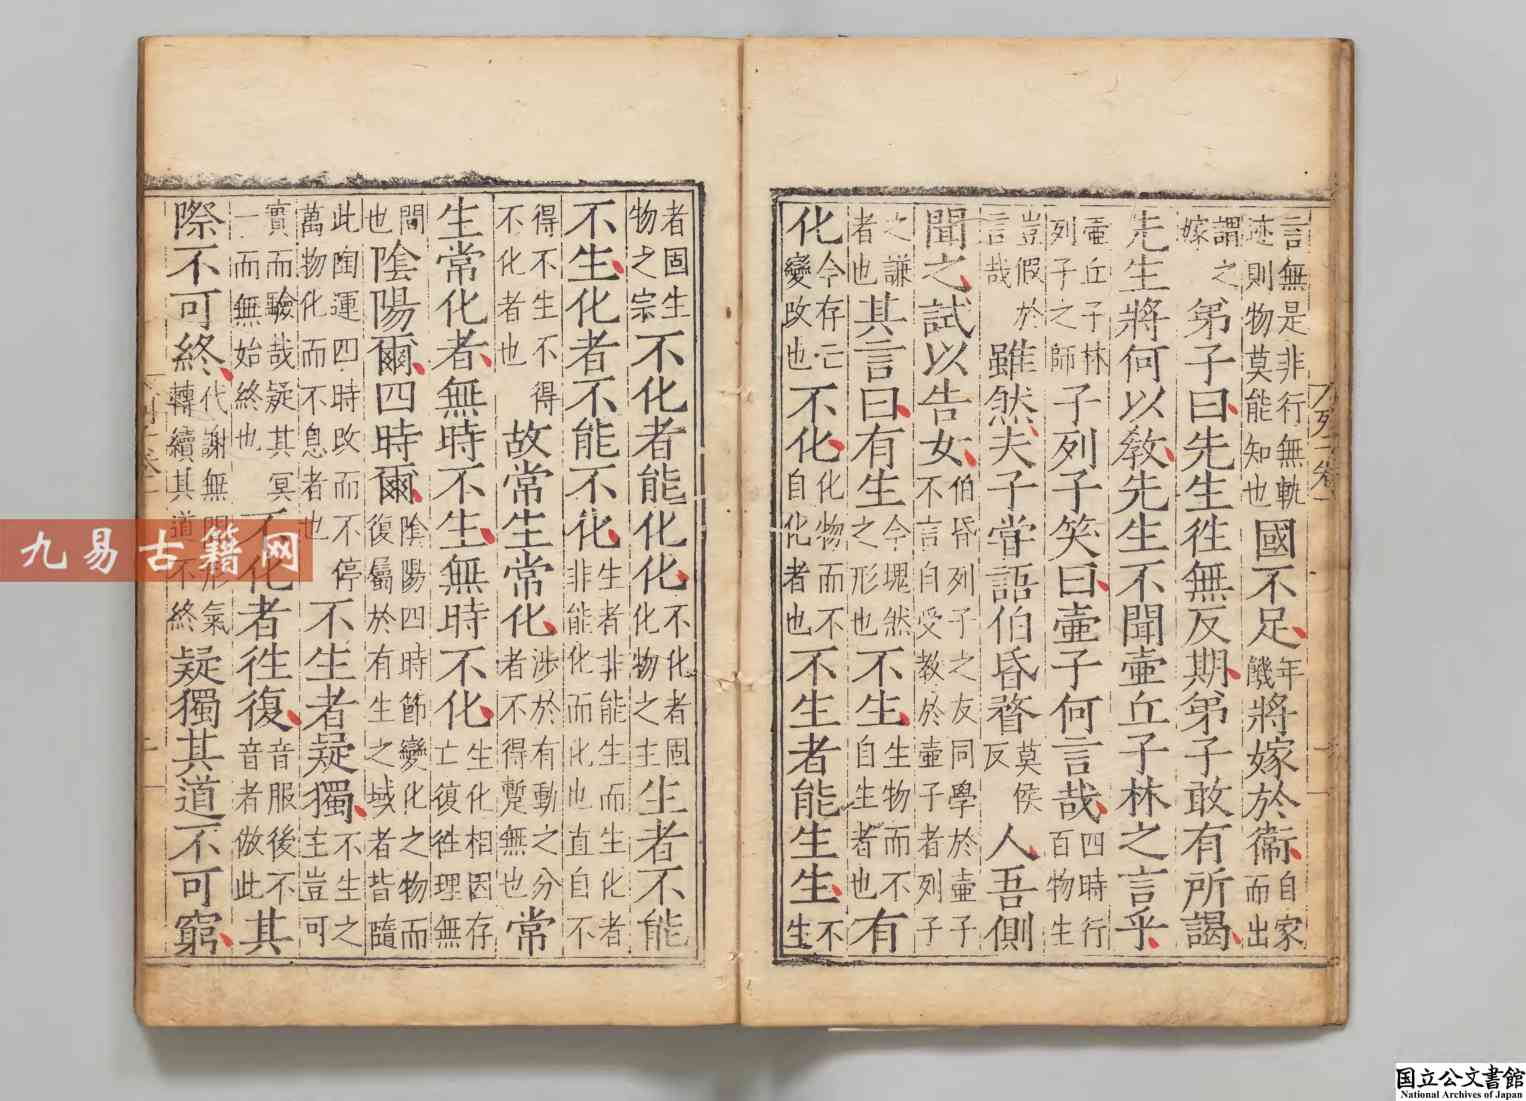 言無是非行無軌迹則物莫能知也國不足年饑將嫁於衛自家而出
謂之嫁弟子曰先生徃無反期弟子敢有所謁
先生將何以敎先生不聞壷丘子林之言乎
壷丘子林列子之師子列子笑曰壷子何言哉四時行百物生
豈假於言哉雖然夫子甞語伯昏瞀莫侯反人吾側
聞之試以告女伯昏列子之友同學於壷子不言自受教於壷子者列子
之謙者也其言曰有生今塊然之形也不生生物而不自生者也有
化今存亡變改也不化化物而不自化者也不生者能生生不生
者固生物之宗不化者能化化不化者固化物之主生者不能
不生化者不能不化生者非能生而生化者非能化而化也直自不
得不生不得不化者也故常生常化涉於有動之分者不得蹔無也常
生常化者無時不生無時不化生化相因存亡復徃理無
間也陰陽爾四時爾陰陽四時節變化之物而復屬於有生之域者皆隨
此陶運四時改而不停萬物化而不息者也不生者疑獨不生之主豈可
實而驗哉疑其冥一而無始終也不化者徃復音服後不音者倣此其
際不可終代謝無間形氣轉續其道不終疑獨其道不可窮
九易古籍网
国立公文書館
National Archives of Japan